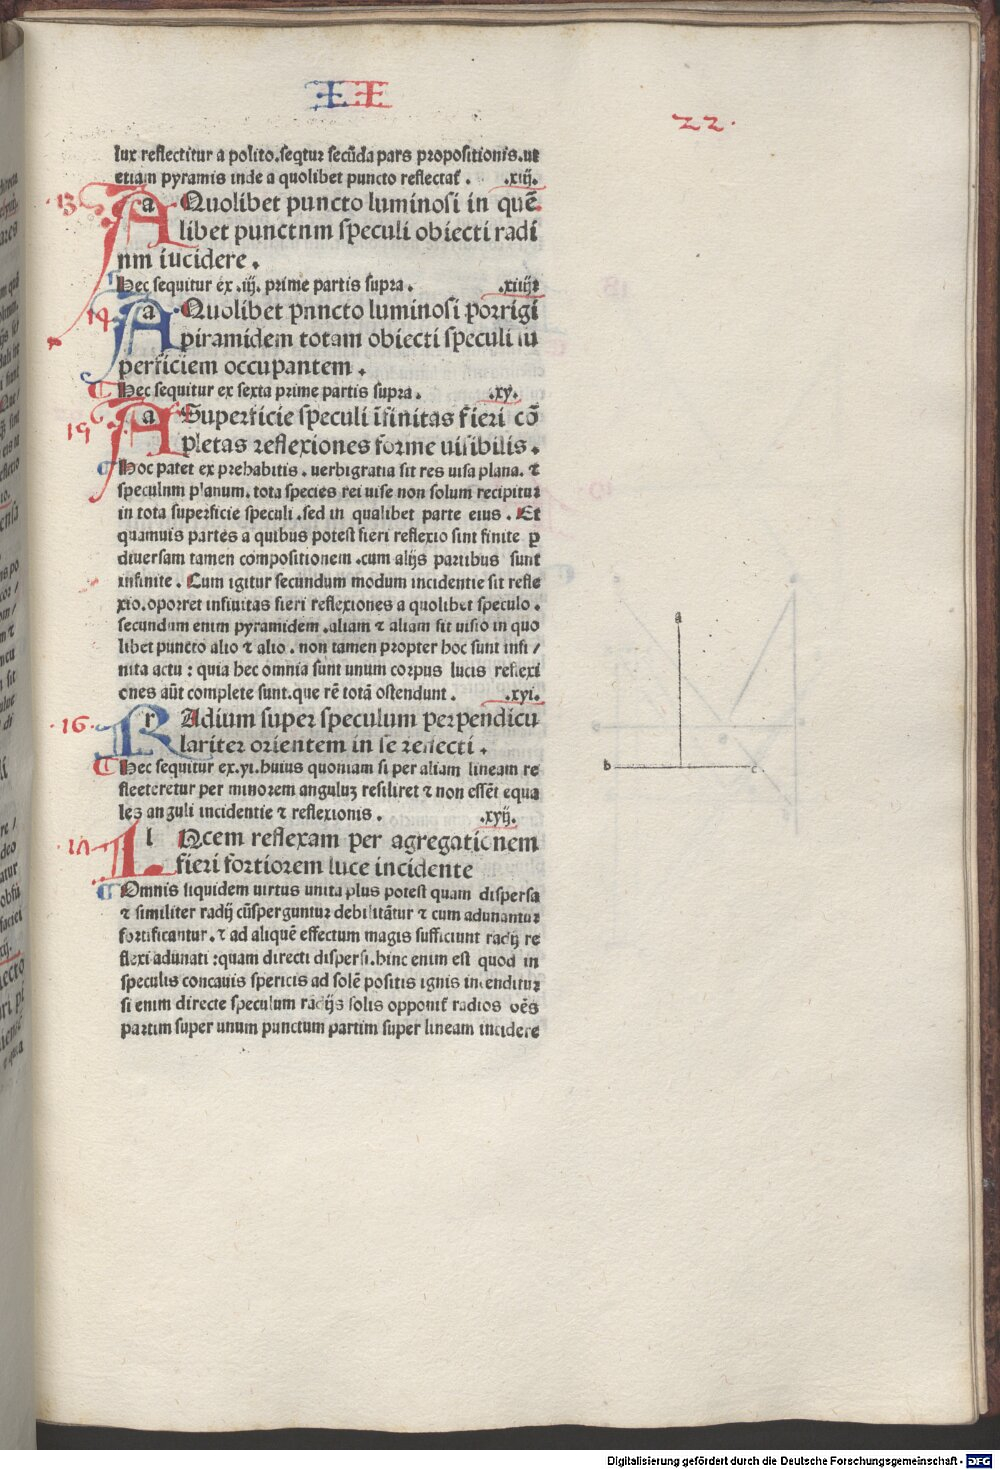 II
22.
lux reflectitur a polito.seqtur secũda pars propositionis.ut
etiam pyramis inde a quolibet puncto reflectat᷑ . .xiij.
13 A a Quolibet puncto luminosi in quẽ
libet punctnm speculi obiecti radi
nm iucidere .
Hec sequitur ex .iij. prime partis supra . .xiiij.
14 A a Quolibet pnncto luminosi porrigi
piramidem totam obiecti speculi su
perficiem occupantem .
Hec sequitur ex sexta prime partis supra . .xv.
15 A a Superficie speculi ĩfinitas fieri cõ
pletas reflexiones forme uisibilis .
Hoc patet ex prehabitis . uerbigratia sit res uisa plana. ⁊
speculnm planum. tota species rei uise non solum recipitur
in tota superficie speculi .sed in qualibet parte eius . Et
quamuis partes a quibus potest fieri reflexio sint finite ꝑ
diuersam tamen compositionem .cum alijs partibus sunt
infinite . Cum igitur secundum modum incidentie sit refle
xio.oporret infinitas fieri reflexiones a quolibet speculo .
secundum enim pyramidem .aliam ⁊ aliam fit uisio in quo
libet puncto alio ⁊ alio . non tamen propter hoc sunt infi /
nita actu : quia hec omnia sunt unum corpus lucis reflexi
ones aũt complete sunt.que rẽ totã ostendunt . .xvi.
.16. R r Adium super speculum perpendicu
lariter orientem in se reflecti .
Hec sequitur ex.vi.huius quoniam si per aliam lineam re
flecteretur per minorem anguluꝫ resiliret ⁊ non essẽt equa
les anguli incidentie ⁊ reflexionis . .xvij.
.17 L l Ncem reflexam per agregationem
fieri fortiorem luce incidente
Omnis siquidem uirtus unita plus potest quam dispersa
⁊ similiter radij cũsperguntur debilitãtur ⁊ cum adunantur
fortificantur. ⁊ ad aliquẽ effectum magis sufficiunt radij re
flexi adunati :quam directi dispersi.hinc enim est quod in
speculis concauis spericis ad solẽ positis ignis incenditur
si enim directe speculum radijs solis opponit᷑ radios oẽs
partim super unum punctum partim super lineam incidere
a
b c
Digitalisierung gefördert durch die Deutsche Forschungsgemeinschaft - DFG